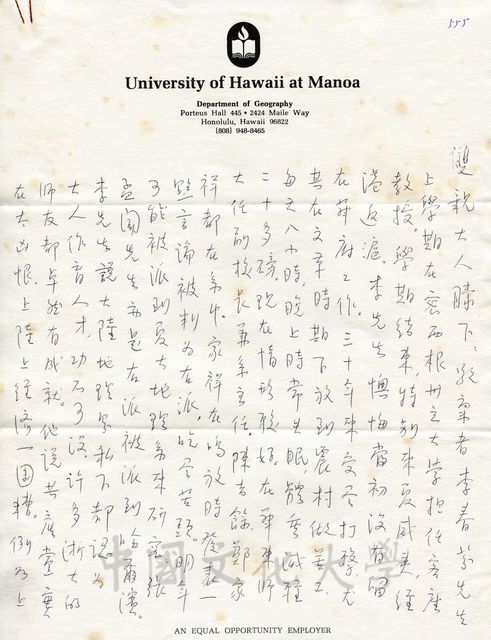 555
University of Hawaii at Manoa
Department of Geography
Porteus Hall 445 • 2424 Maile Way
Honolulu, Hawaii 96822
(808) 948-8465
雙親大人膝下:敬稟者李春芬先生
上學期在密西根州立大學担任客座
教授。學期結束,特別來夏威夷,經
港返滬。李先生懊悔當初沒有留
在華府工作。三十年來受盡打擊,尤
其在文革時期下放到農村做苦工,
每天八小時,晚上時常失眠,體重減輕
二十多磅。現在情形較好,在華東師
大任副校長兼系主任。陳吉餘鄭家
祥都在系中。家祥在鳴放時發表一
點言論被判為右派,吃盡苦頭,明年
可能被派到夏大地理系來研究。張
孟聞先生亦是右派被派到哈爾濱。
李先生說大陸地理家私下都認為
大人作育人才,功不可沒,許多浙大的
師友都卓然有成就。他說共產黨實
在太凶恨,上陸上經濟一团糟。例如上
中國文化大學
AN EQUAL OPPORTUNITY EMPLOYER